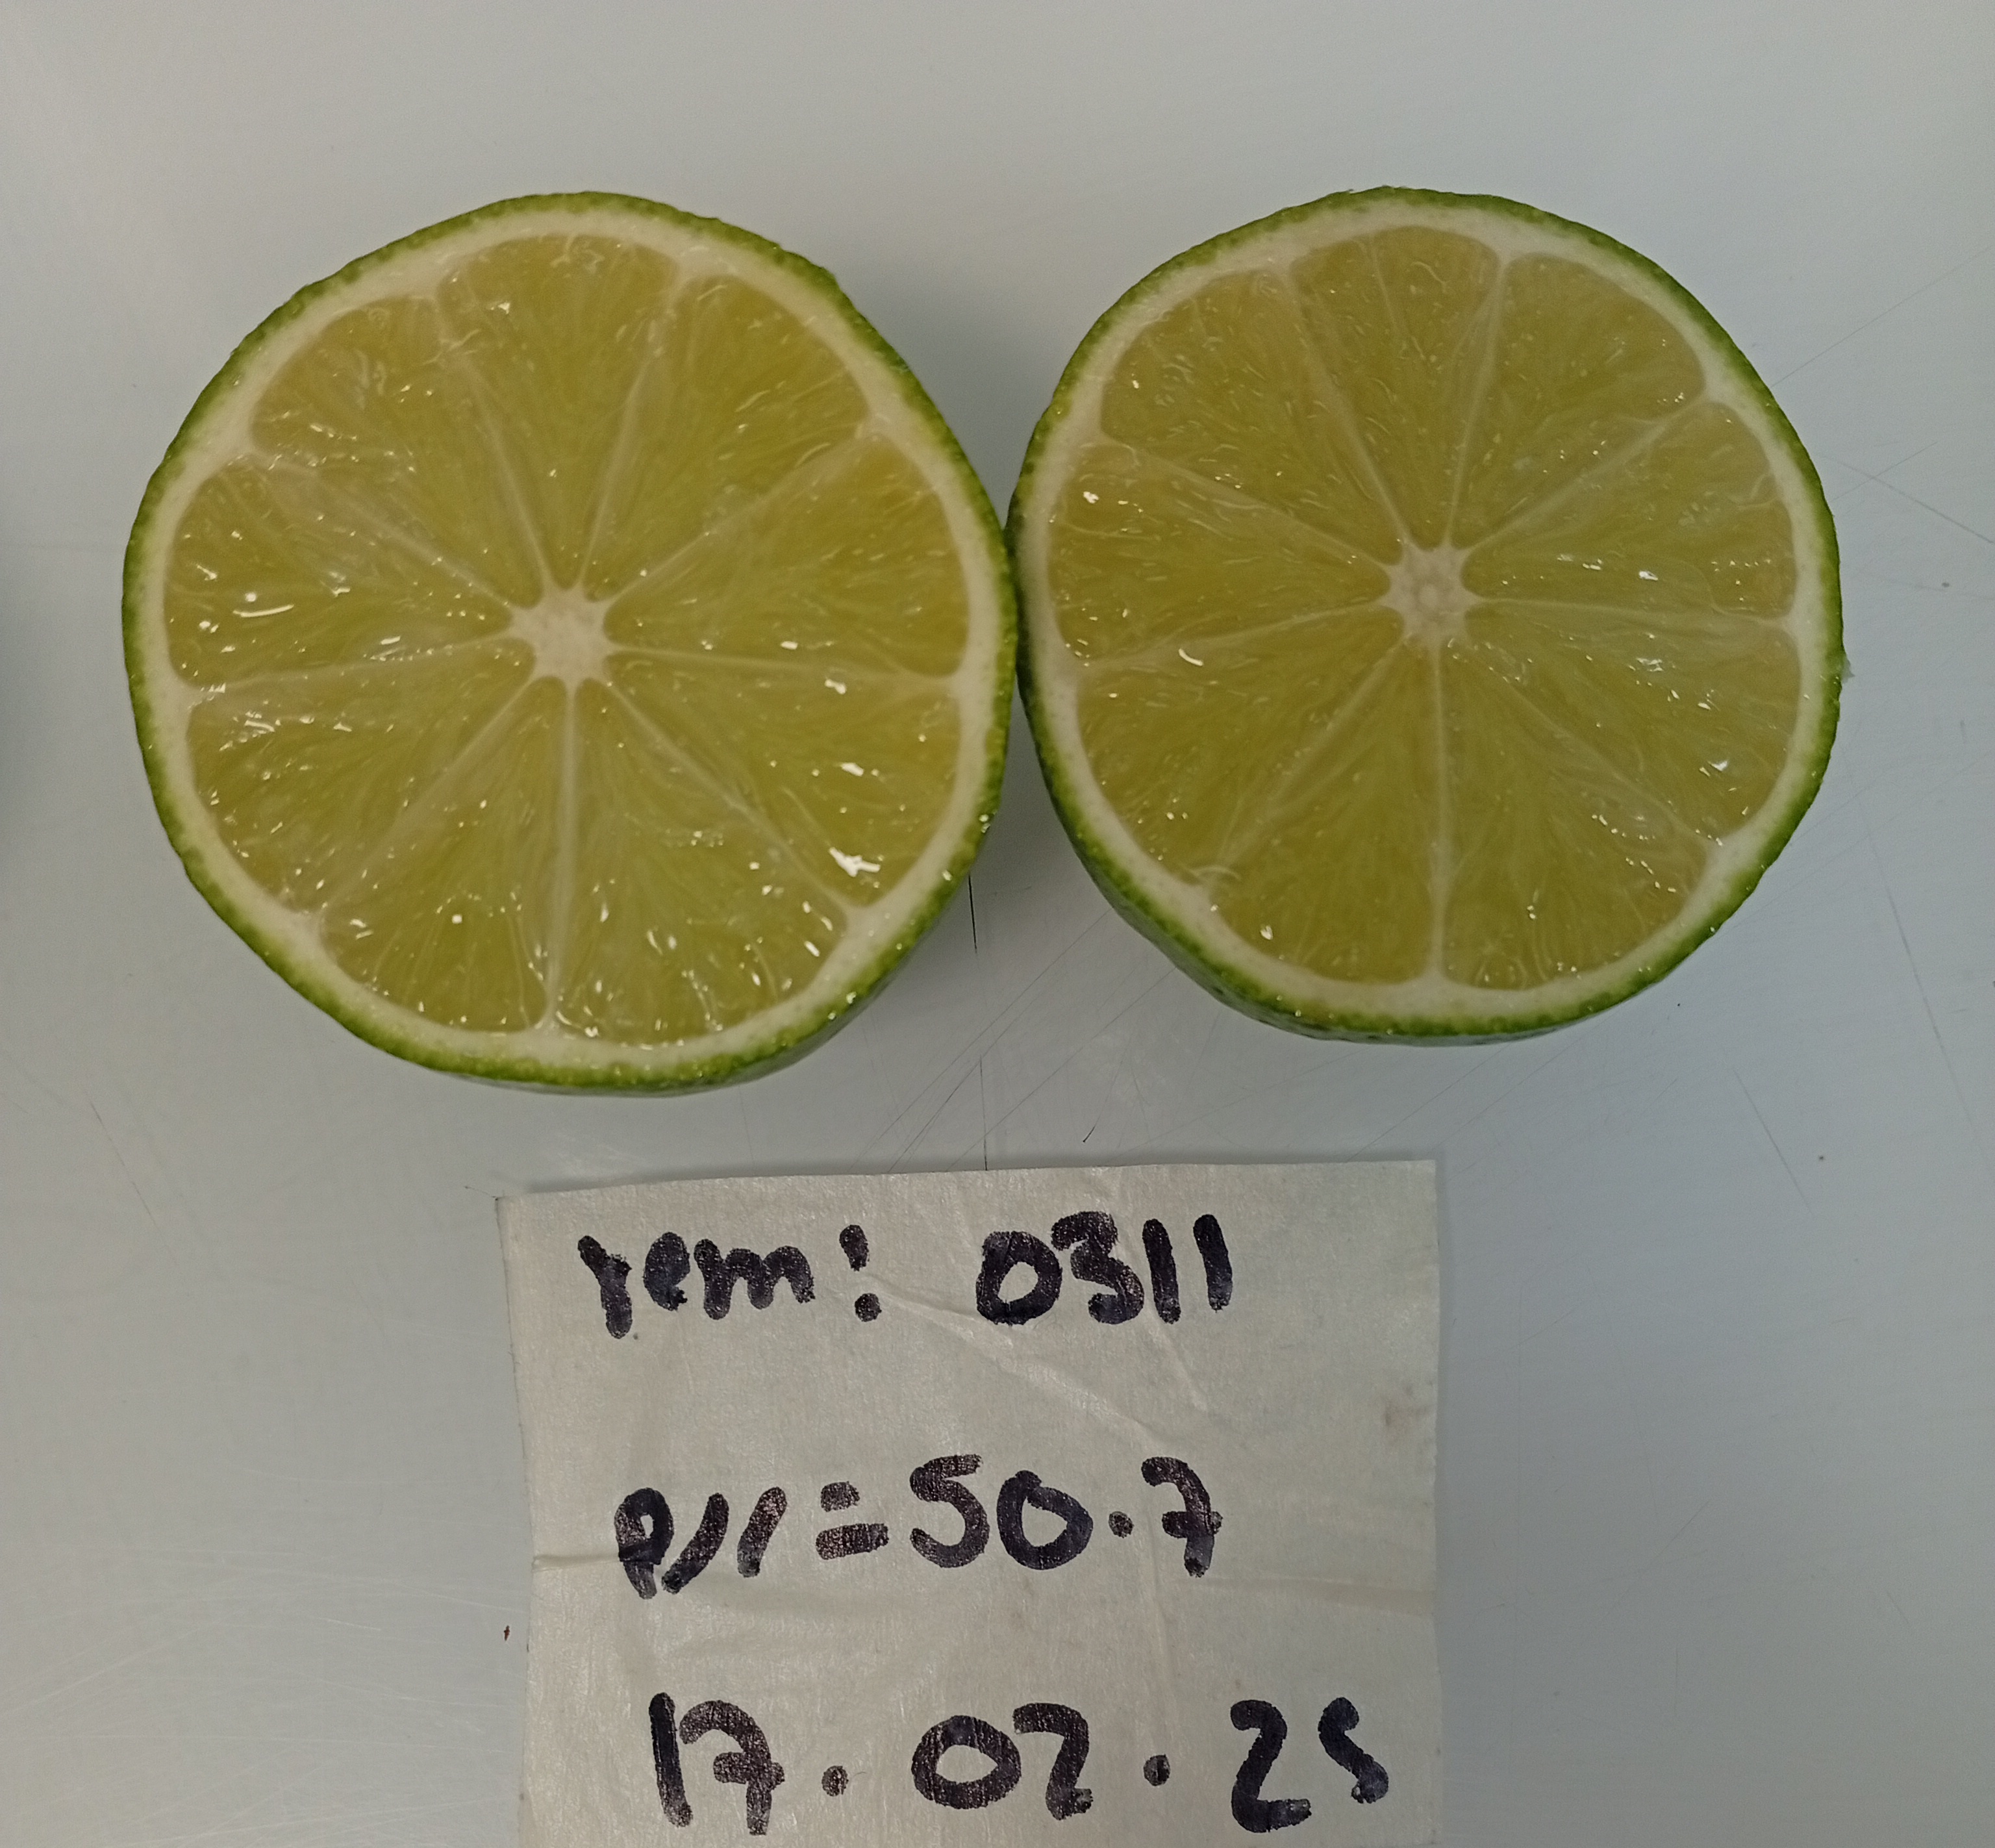 rem: 0311
p/r = 50.7
17.02.25